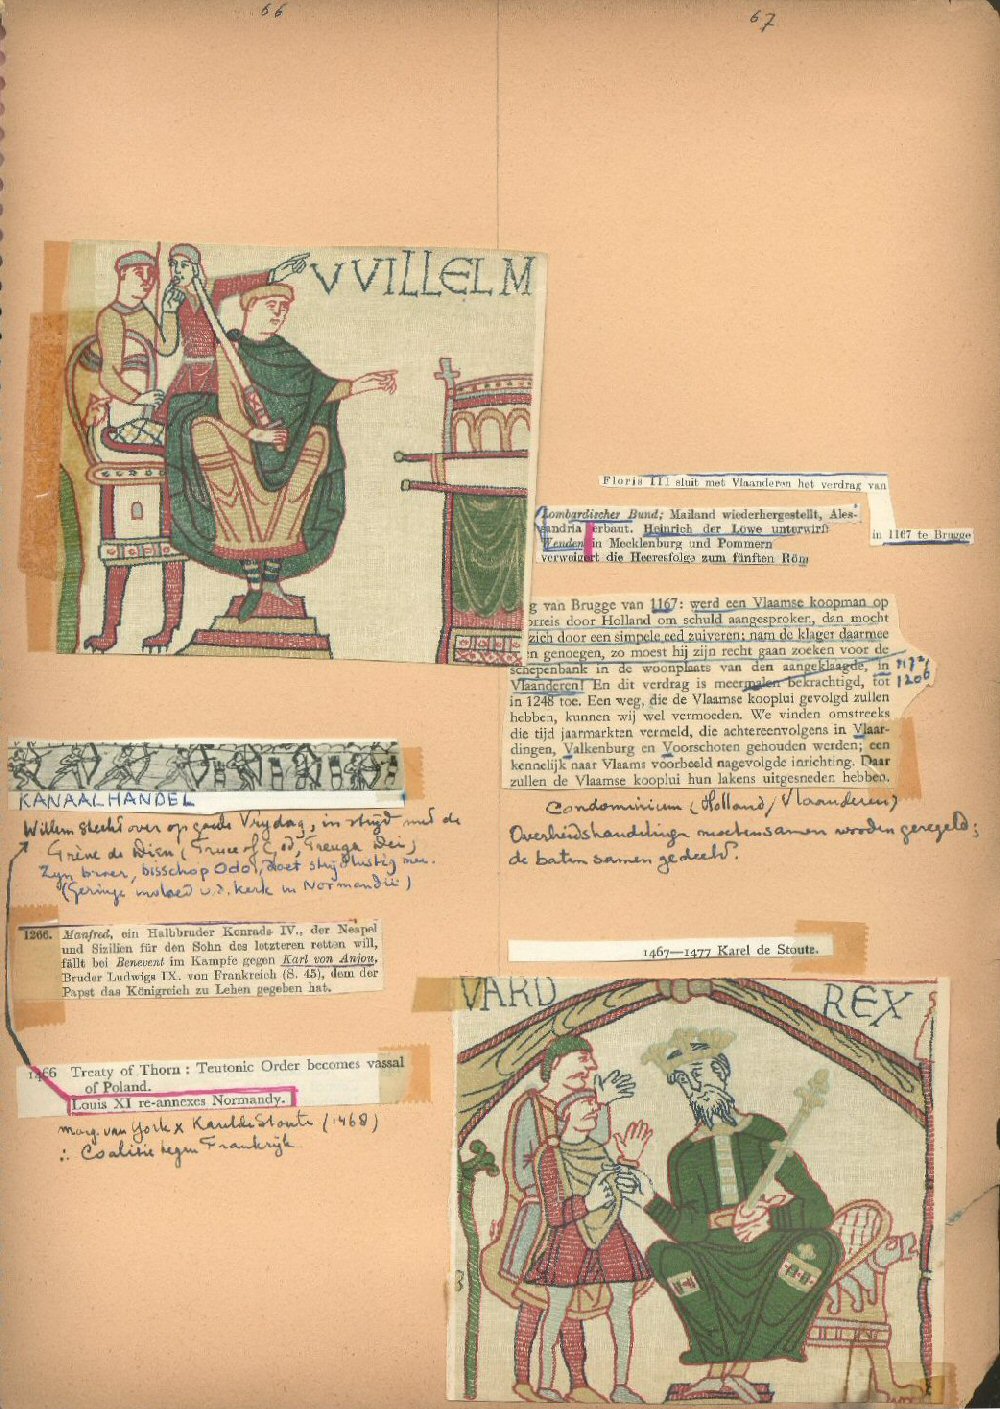 66
67
VVILLELM
Floris III sluit met Vlaanderen het verdrag van
in 1167 te Brugge
Lombardischer Bund; Mailand wiederhergestellt, Ales-
sandria erbaut. Heinrich der Löwe unterwirft
Wenden in Mecklenburg und Pommern
verweigert die Heeresfolge zum fünften Röm
g van Brugge van 1167: werd een Vlaamse koopman op
orreis door Holland om schuld aangesproken, dan mocht
zich door een simpele eed zuiveren; nam de klager daarmee
en genoegen, zo moest hij zijn recht gaan zoeken voor de
schepenbank in de woonplaats van den aangeklaagde, in
Vlaanderen! En dit verdrag is meermalen bekrachtigd, tot
in 1248 toe. Een weg, die de Vlaamse kooplui gevolgd zullen
hebben, kunnen wij wel vermoeden. We vinden omstreeks
die tijd jaarmarkten vermeld, die achtereenvolgens in Vlaar-
dingen, Valkenburg en Voorschoten gehouden werden; een
kennelijk naar Vlaams voorbeeld nagevolgde inrichting. Daar
zullen de Vlaamse kooplui hun lakens uitgesneden hebben.
1206
Condominium (Holland/Vlaanderen)
Overheidshandelingen moeten samen worden geregeld;
de baten samen gedeeld.
KANAALHANDEL
Willem steekt over op gande Vrydag, in strijd met de
Trève de Dieu (Truce of God, Treuga Dei;
Zyn broer, bisschop Odo, doet strijdlustig mee.
(Geringe invloed v.d. Kerk in Normandië)
1266. Manfred, ein Halbbruder Konrads IV., der Neapel
und Sizilien für den Sohn des letzteren retten will,
fällt bei Benevent im Kampfe gegen Karl von Anjou,
Bruder Ludwigs IX. von Frankreich (S. 45), dem der
Papst das Königreich zu Lehen gegeben hat.
1466 Treaty of Thorn: Teutonic Order becomes vassal
of Poland.
Louis XI re-annexes Normandy.
Marg. van York x Karel de Stoute (1468)
∴ Coalitie tegen Frankrijk
1467—1477 Karel de Stoute.
VARD REX